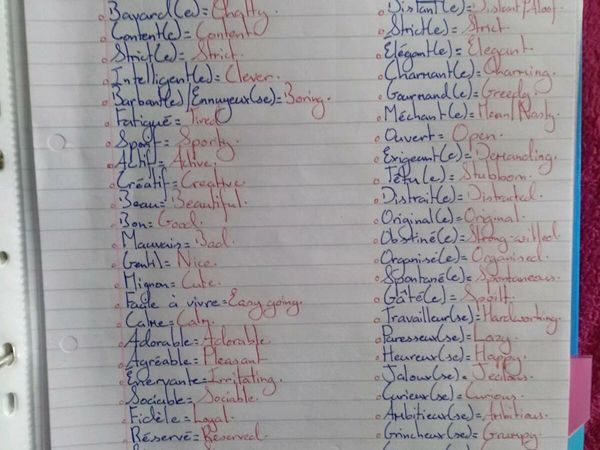 Bavard(e)= Chatty
Content(e)= Content
Strict(e)= Strict.
Intelligent(e)= Clever.
Barbant(e)/Ennuyeux(se)= Boring.
Fatigué= Tired
Sport= Sporty
Actif= Active.
Créatif= Creative.
Beau= Beautiful.
Bon= Good.
Mauvais= Bad.
Gentil= Nice.
Mignon= Cute.
Facile à vivre= Easy going.
Calme= Calm.
Adorable= Adorable
Agréable= Pleasant
Énervante= Irritating.
Sociable= Sociable.
Fidèle= Loyal.
Réservé= Reserved.
Distant(e)= Distant/Aloof.
Strict(e)= Strict.
Élégant(e)= Elegant.
Charmant(e)= Charming.
Gourmand(e)= Greedy.
Méchant(e)= Mean/Nasty.
Ouvert= Open.
Exigeant(e)= Demanding.
Têtu(e)= Stubborn.
Distrait(e)= Distracted.
Original(e)= Original.
Obstiné(e)= Strong-willed
Organisé(e)= Organised.
Spontané(e)= Spontaneous.
Gâté(e)= Spoilt.
Travailleur(se)= Hardworking.
Paresseux(se)= Lazy.
Heureux(se)= Happy.
Jaloux(se)= Jealous.
Curieux(se)= Curious.
Ambitieux(se)= Ambitious.
Grincheux(se)= Grumpy.